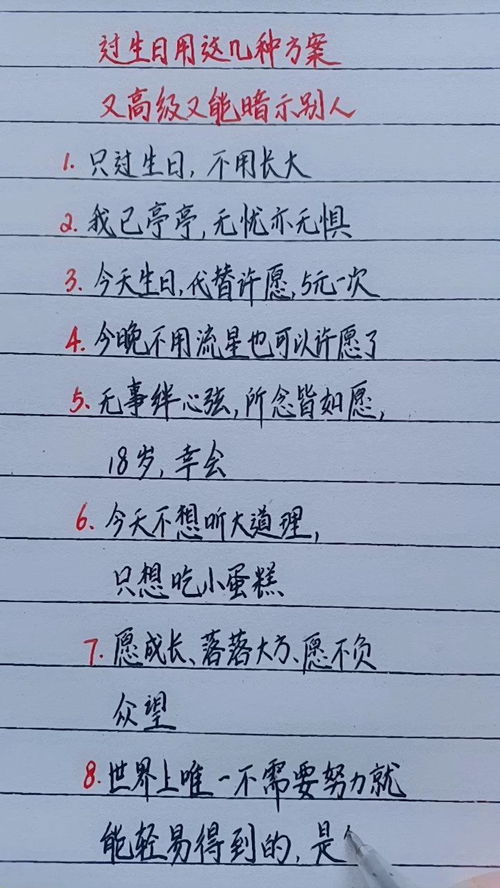 过生日用这几种方案
又高级又能暗示别人
1. 只过生日, 不用长大
2. 我已亭亭, 无忧亦无惧
3. 今天生日, 代替许愿, 5元一次
4. 今晚不用流星也可以许愿了
5. 无事绊心弦, 所念皆如愿,
18岁, 幸会
6. 今天不想听大道理,
只想吃小蛋糕
7. 愿成长、落落大方、愿不负
众望
8. 世界上唯一不需要努力就
能轻易得到的, 是